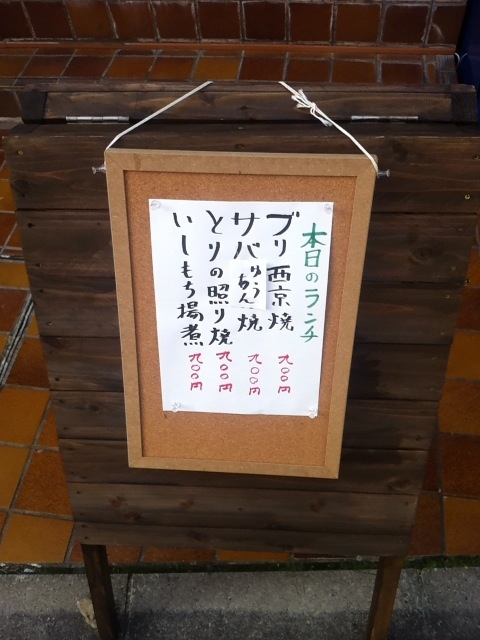 本日のランチ
ブリ西京焼 九〇〇円
サバりゅうあん焼 九〇〇円
とりの照り焼 九〇〇円
いしもち揚煮 九〇〇円